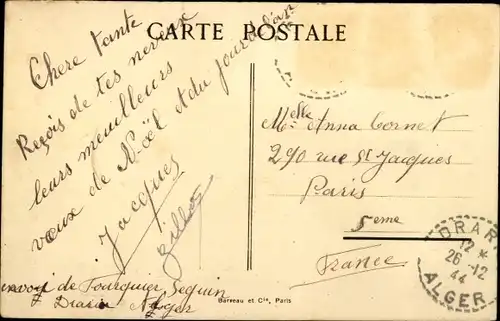 CARTE POSTALE
Chere tante
Reçois de tes neveux
leurs meuilleurs
vœux de Noël et du jour de l'an
Jacques
Melle Anna Cornet
290 rue St Jacques
Paris
5eme
France
envoy de Fourquier Seguin
Draria Alger
Barveau et Cie, Paris
DRAR
12 *
26-12
44
ALGER